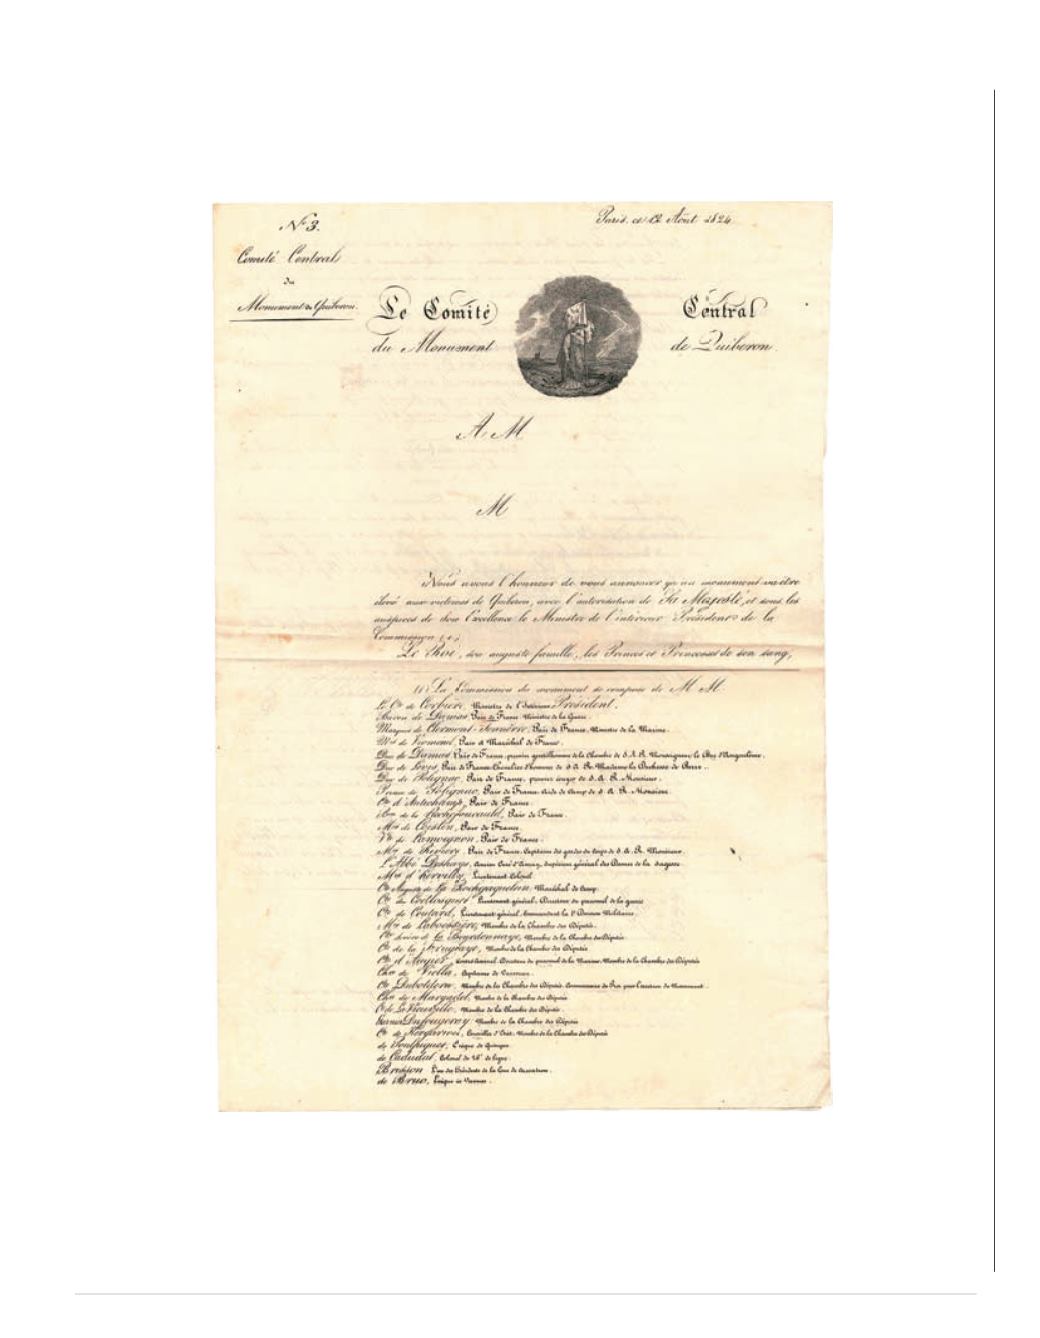 Nº 3.
Paris, ce 12 Août 1824
Comité Central
du
Monument de Quiberon.
Le Comité Central
du Monument de Quiberon.
A M
M
Nous avons l'honneur de vous annoncer qu'un monument va être
élevé aux victimes de Quiberon, avec l'autorisation de Sa Majesté, et sous les
auspices de son Excellence le Ministre de l'intérieur Président de la
Commission (1).
Le Roi, son auguste famille, les Princes et Princesses de son sang,
(1) La Commission du monument se compose de M M.
Le Cte de Corbière, Ministre de l'Intérieur Président.
Baron de Damas Pair de France, Ministre de la Guerre.
Marquis de Clermont-Tonnerre, Pair de France, Ministre de la Marine.
Mis de Viomenil, Pair et Maréchal de France.
Duc de Damas, Pair de France, premier gentilhomme de la Chambre de S. A. R. Monseigneur le Duc d'Angoulême.
Duc de Levis, Pair de France, Chevalier d'honneur de S. A. R. Madame la Duchesse de Berry.
Duc de Polignac, Pair de France, premier écuyer de S. A. R. Monsieur.
Prince de Polignac, Pair de France, Aide de Camp de S. A. R. Monsieur.
Cte d'Autichamp, Pair de France.
de la Rochefoucauld, Pair de France.
Mis de Coislin, Pair de France.
Vte de Lamoignon, Pair de France.
Mis de Rivière, Pair de France, Capitaine des gardes du Corps de S. A. R. Monsieur.
L'Abbé Deshays, Ancien Curé d'Auray, Supérieur général des Dames de la Sagesse.
Mis d'Hervilly, Lieutenant Colonel
Cte Auguste de La Rochejaquelein, Maréchal de Camp.
Cte de Coëtlosquet Lieutenant-général, Directeur du personnel de la guerre
Cte de Coutard, Lieutenant-général, Commandant la 1e Division Militaire.
Mis de Laboëssière, Membre de la Chambre des Députés.
Cte de La Bourdonnaye, Membre de la Chambre des Députés
Cte de la Fruglaye, Membre de la Chambre des Députés
Cte d'Augier, Contre-Amiral, Directeur du personnel de la Marine, Membre de la Chambre des Députés
Cher de Viella, Capitaine de Vaisseau.
Cte Dubotderu, Membre de la Chambre des Députés, Commissaire du Roi pour l'érection du Monument.
Cher de Margadel, Membre de la Chambre des Députés
Cte de La Vieuville, Membre de la Chambre des Députés.
Baron Dufougeray Membre de la Chambre des Députés
Cte de Kergariou, Conseiller d'Etat, Membre de la Chambre des Députés
de Poulpiquet, Evêque de Quimper.
de Cadudal, Colonel de ligne.
Brisson L'un des Présidents de la Cour de Cassation.
de Bruc, Evêque de Vannes.